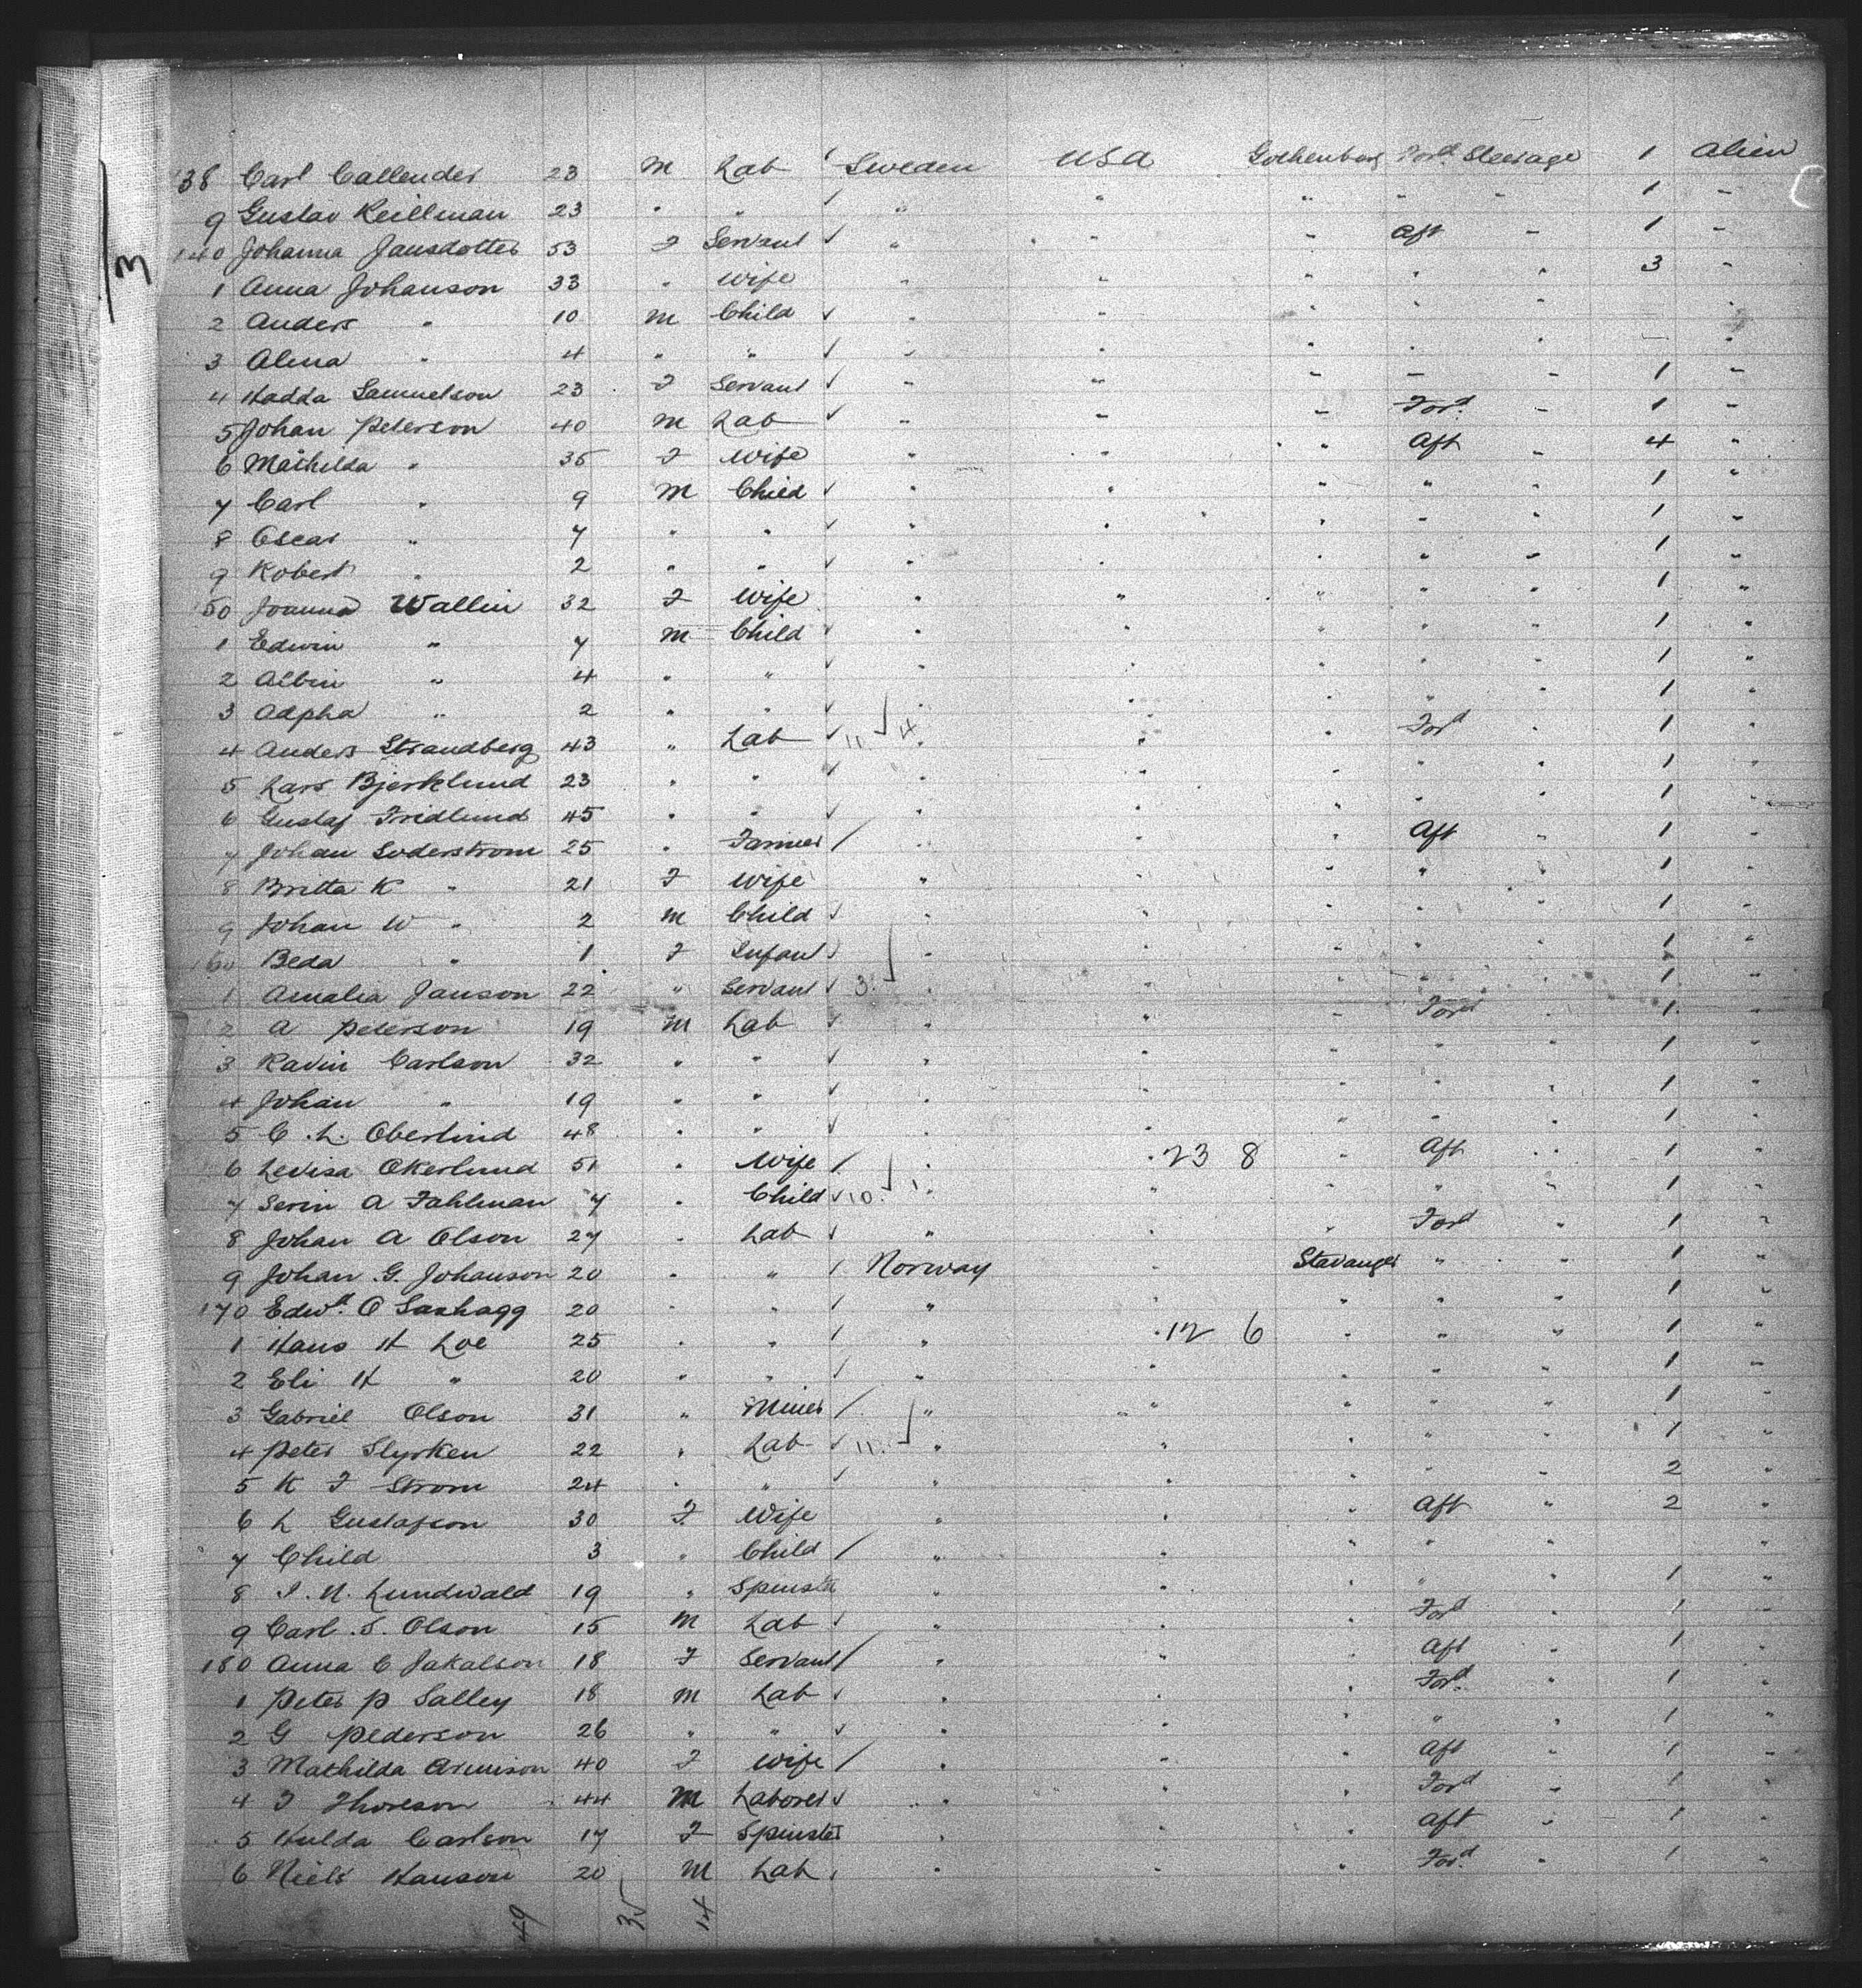 138 Carl Callender 23 M Lab Sweden USA Gothenburg Ford Steerage 1 Alien
9 Gustav Keillman 23 " " ✓ " " " " " 1 "
140 Johanna Jansdotter 53 F Servant ✓ " " " Aft " 1 "
1 Anna Johanson 33 " Wife " " " " " 3 "
2 Anders " 10 M Child ✓ " " " " " "
3 Alma " 4 " " ✓ " " " " " "
4 Hadda Samuelson 23 F Servant ✓ " " " " " 1 "
5 Johan Peterson 40 M Lab ✓ " " " Ford " 1 "
6 Mathilda " 35 F Wife " " " Aft " 4 "
7 Carl " 9 M Child ✓ " " " " " 1 "
8 Oscar " 7 " " ✓ " " " " " 1 "
9 Robert " 2 " " ✓ " " " " " 1 "
150 Joanna Wallin 32 F Wife " " " " " 1 "
1 Edwin " 7 M Child ✓ " " " " " 1 "
2 Albin " 4 " " ✓ " " " " " 1 "
3 Adpha " 2 " " ✓ " " " " " 1 "
4 Anders Strandberg 43 " Lab ✓ 11 4 " " " Ford " 1 "
5 Lars Bjorklund 23 " " ✓ " " " " " 1 "
6 Gustaf Fridlund 45 " " ✓ " " " " " 1 "
7 Johan Soderstrom 25 " Farmer / " " " Aft " 1 "
8 Britta K " 21 F Wife " " " " " 1 "
9 Johan W " 2 M Child ✓ " " " " " 1 "
160 Beda " 1 F Infant ✓ " " " " " 1 "
1 Amalia Janson 22 " Servant ✓ 3 " " " " " 1 "
2 A Peterson 19 M Lab ✓ " " " Ford " 1 "
3 Karin Carlson 32 " " ✓ " " " " " 1 "
4 Johan " 19 " " ✓ " " " " " 1 "
5 C. L. Oberlind 48 " " ✓ " " " " " 1 "
6 Levisa Okerlund 51 " Wife / " " 23 8 " Aft " 1 "
7 Serin A Fahlman 7 " Child ✓ 10 1 " " " " " 1 "
8 Johan A Olson 27 " Lab ✓ " " " Ford " 1 "
9 Johan G. Johanson 20 " " / Norway " Stavanger " " 1 "
170 Edwd. O 20 " " / " " " " " 1 "
1 Hans H Loe 25 " " / " " 12 6 " " " 1 "
2 Eli H " 20 " " / " " " " " 1 "
3 Gabriel Olson 31 " Miner / " " " " " 1 "
4 Peter Slyrken 22 " Lab ✓ 11 " " " " " 1 "
5 K F Strom 24 " " ✓ " " " " " 2 "
6 L Gustafson 30 F Wife " " " Aft " 2 "
7 Child 3 " Child / " " " " " "
8 I. N. Lundwald 19 " Spinster " " " " " 1 "
9 Carl S. Olson 15 M Lab ✓ " " " Ford " 1 "
180 Anna C Jakalson 18 F Servant / " " " Aft " 1 "
1 Peter P Salley 18 M Lab ✓ " " " Ford " 1 "
2 G Pederson 26 " " ✓ " " " " " 1 "
3 Mathilda Armison 40 F Wife / " " " Aft " 1 "
4 T Thorson 44 M Laborer ✓ " " " Ford " 1 "
5 Hulda Carlson 17 F Spinster " " " Aft " 1 "
6 Niels Hanson 20 M Lab " " " Ford " 1 "
49 35 14